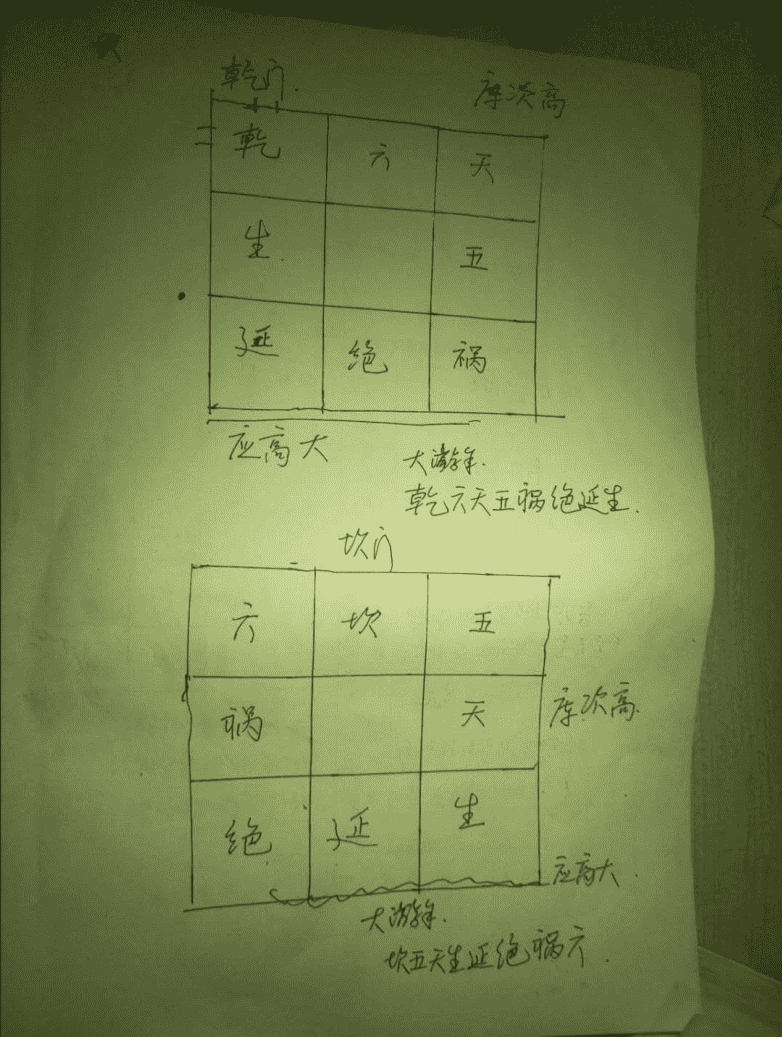 乾门
库次高
乾 六 天
生 五
延 绝 祸
应高大
大游年
乾六天五祸绝延生
坎门
六 坎 五
祸 天 库次高
绝 延 生
应高大
大游年
坎五天生延绝祸六